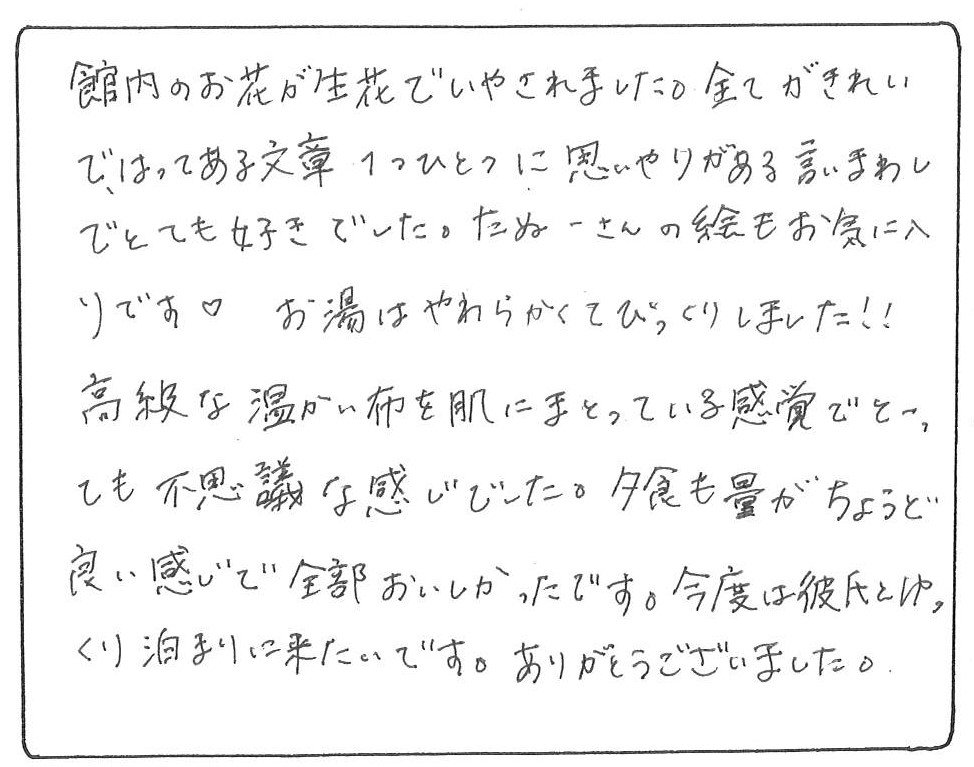 館内のお花が生花でいやされました。全てがきれい
で、はってある文章1つひとつに思いやりがある言いまわし
でとても好きでした。たぬーさんの絵もお気に入
りです♡ お湯はやわらかくてびっくりしました!!
高級な温かい布を肌にまとっている感覚でとーっ
ても不思議な感じでした。夕食も量がちょうど
良い感じで全部おいしかったです。今度は彼氏とゆっ
くり泊まりに来たいです。ありがとうございました。